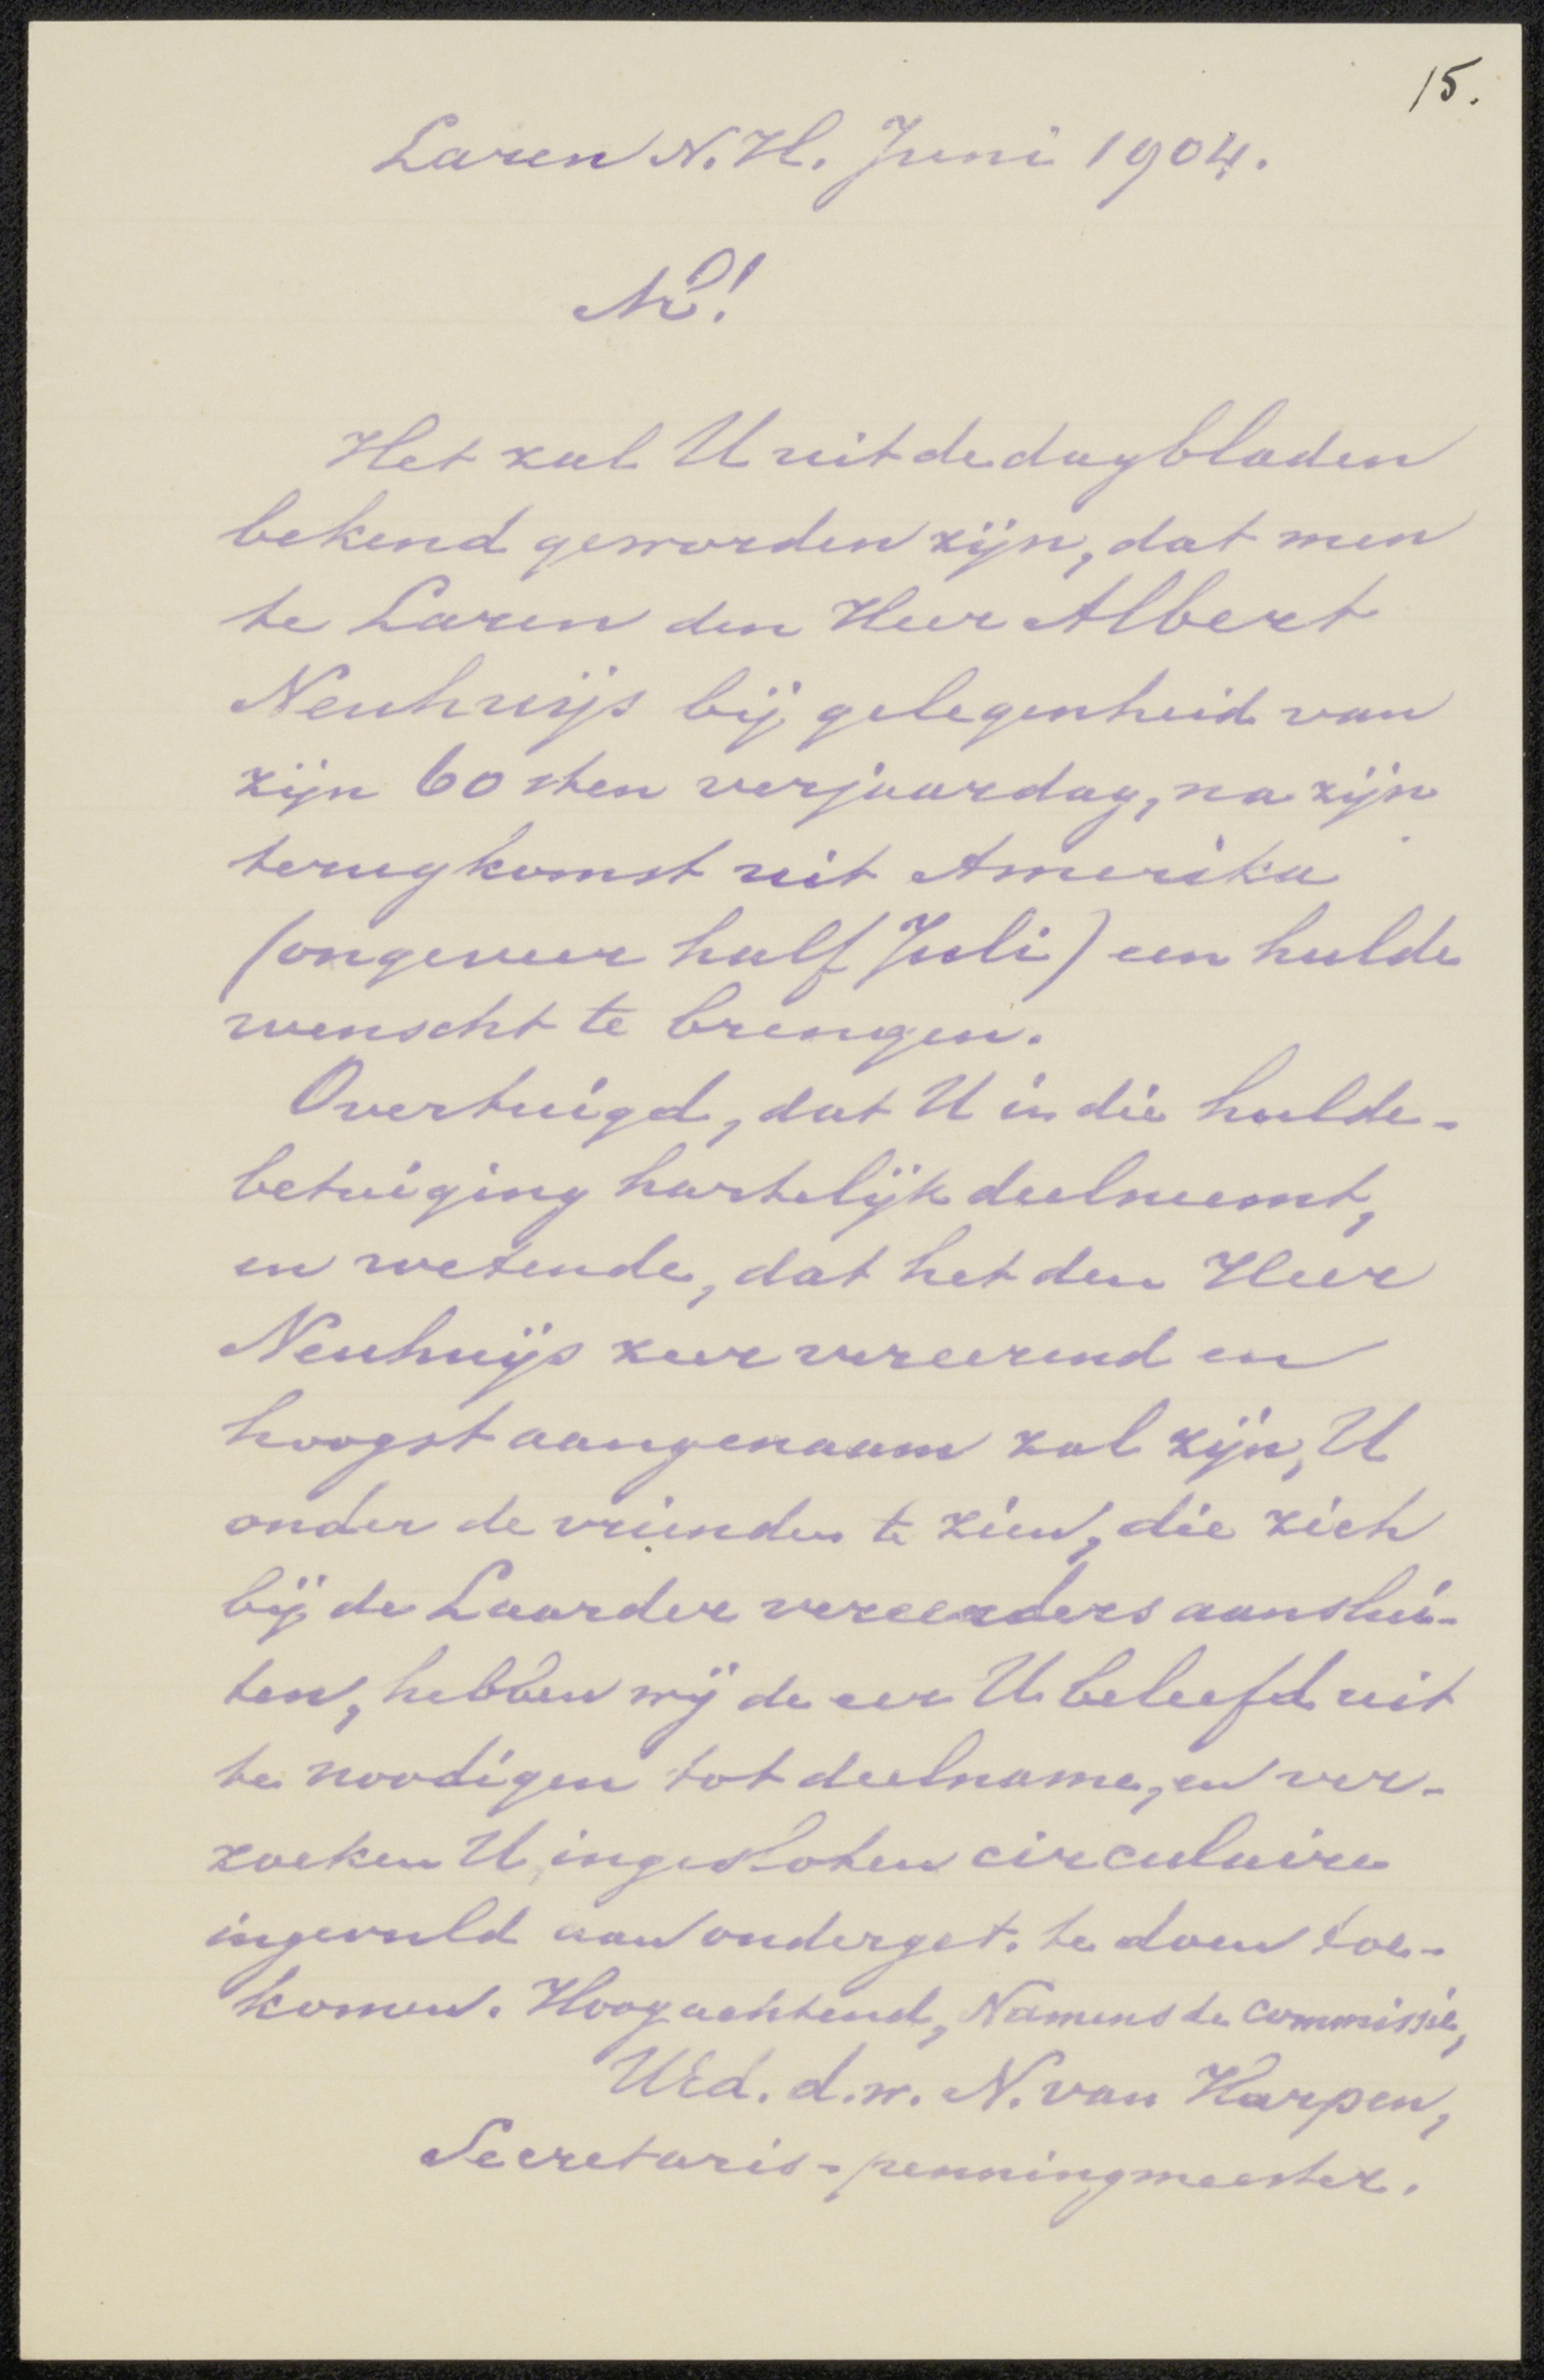 15.
Laren N.H. Juni 1904.
M!
Het zal U uit de dagbladen
bekend geworden zijn, dat men
te Laren den Heer Albert
Neuhuijs bij gelegenheid van
zijn 60sten verjaardag, na zijn
terugkomst uit Amerika
(ongeveer half Juli) een hulde
wenscht te brengen.
Overtuigd, dat U in die hulde-
betuiging hartelijk deelneemt,
en wetende, dat het den Heer
Neuhuijs zeer vereerend en
hoogst aangenaam zal zijn, U
onder de vrienden te zien, die zich
bij de Laarder vereerders aanslui-
ten, hebben wij de eer U beleefd uit
te noodigen tot deelname, en ver-
zoeken U, ingesloten circulaire
ingevuld aan onderget. te doen toe-
komen. Hoogachtend, Namens de Commissie,
UEd. d.w. N. van Harpen,
Secretaris-penningmeester.